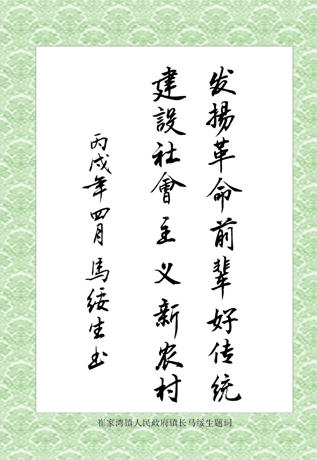 发揚革命前辈好传统
建設社會主义新农村
丙戌年四月 馬绥生书
崔家湾镇人民政府镇长马绥生题词